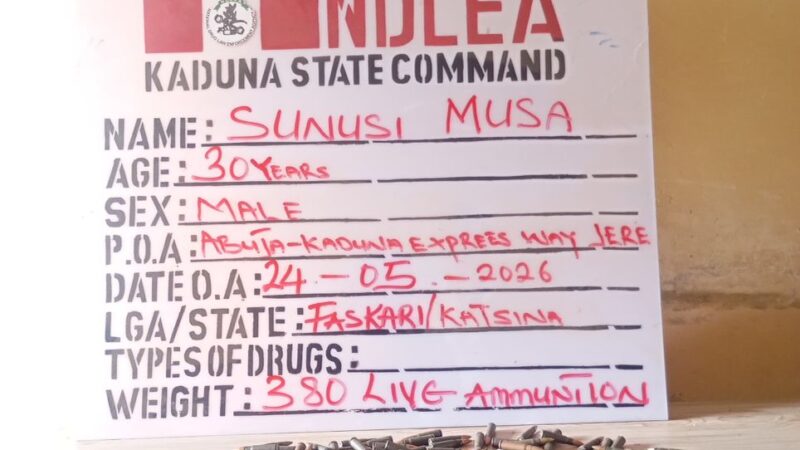 NDLEA
KADUNA STATE COMMAND
NAME: SUNUSI MUSA
AGE: 30 YEARS
SEX: MALE
P.O.A: ABUJA-KADUNA EXPREES WAY JERE
DATE O.A: 24-05-2026
LGA/STATE: FASKARI/KATSINA
TYPES OF DRUGS:
WEIGHT: 380 LIVE AMMUNITION